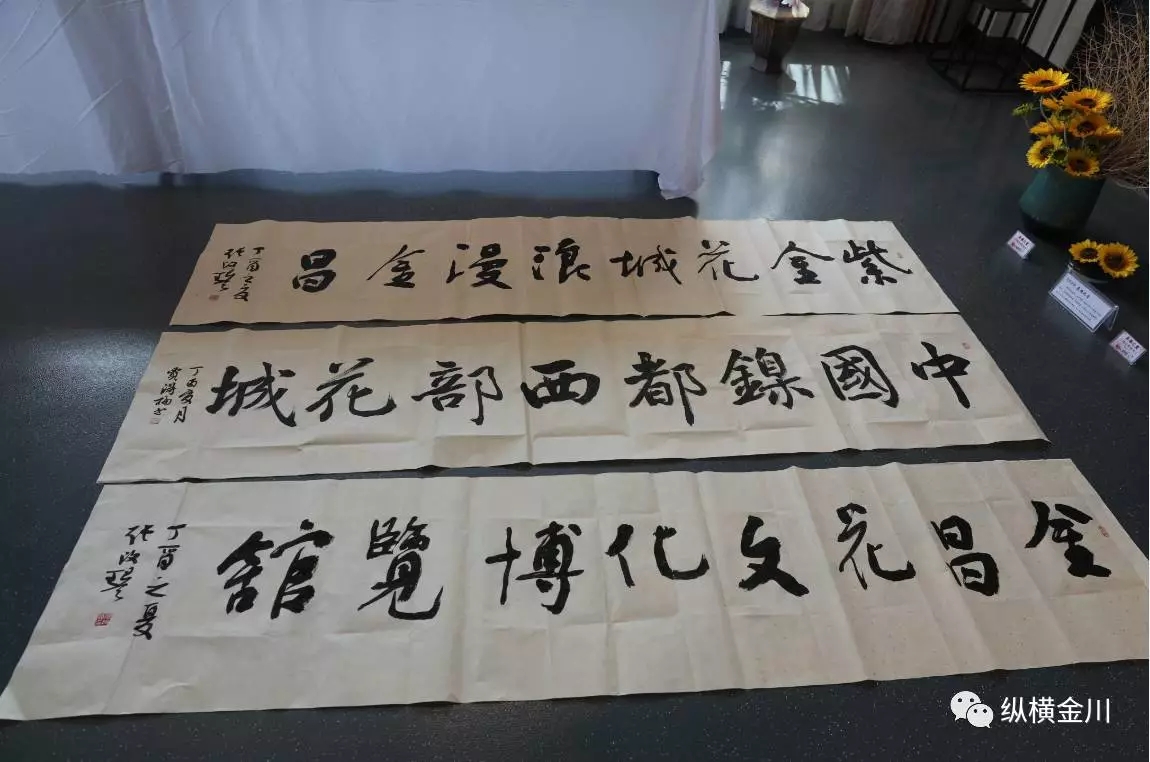 紫金花城浪漫金昌
丁酉之夏
中國鎳都西部花城
丁酉夏月
金昌花文化博覽舘
丁酉之夏
纵横金川